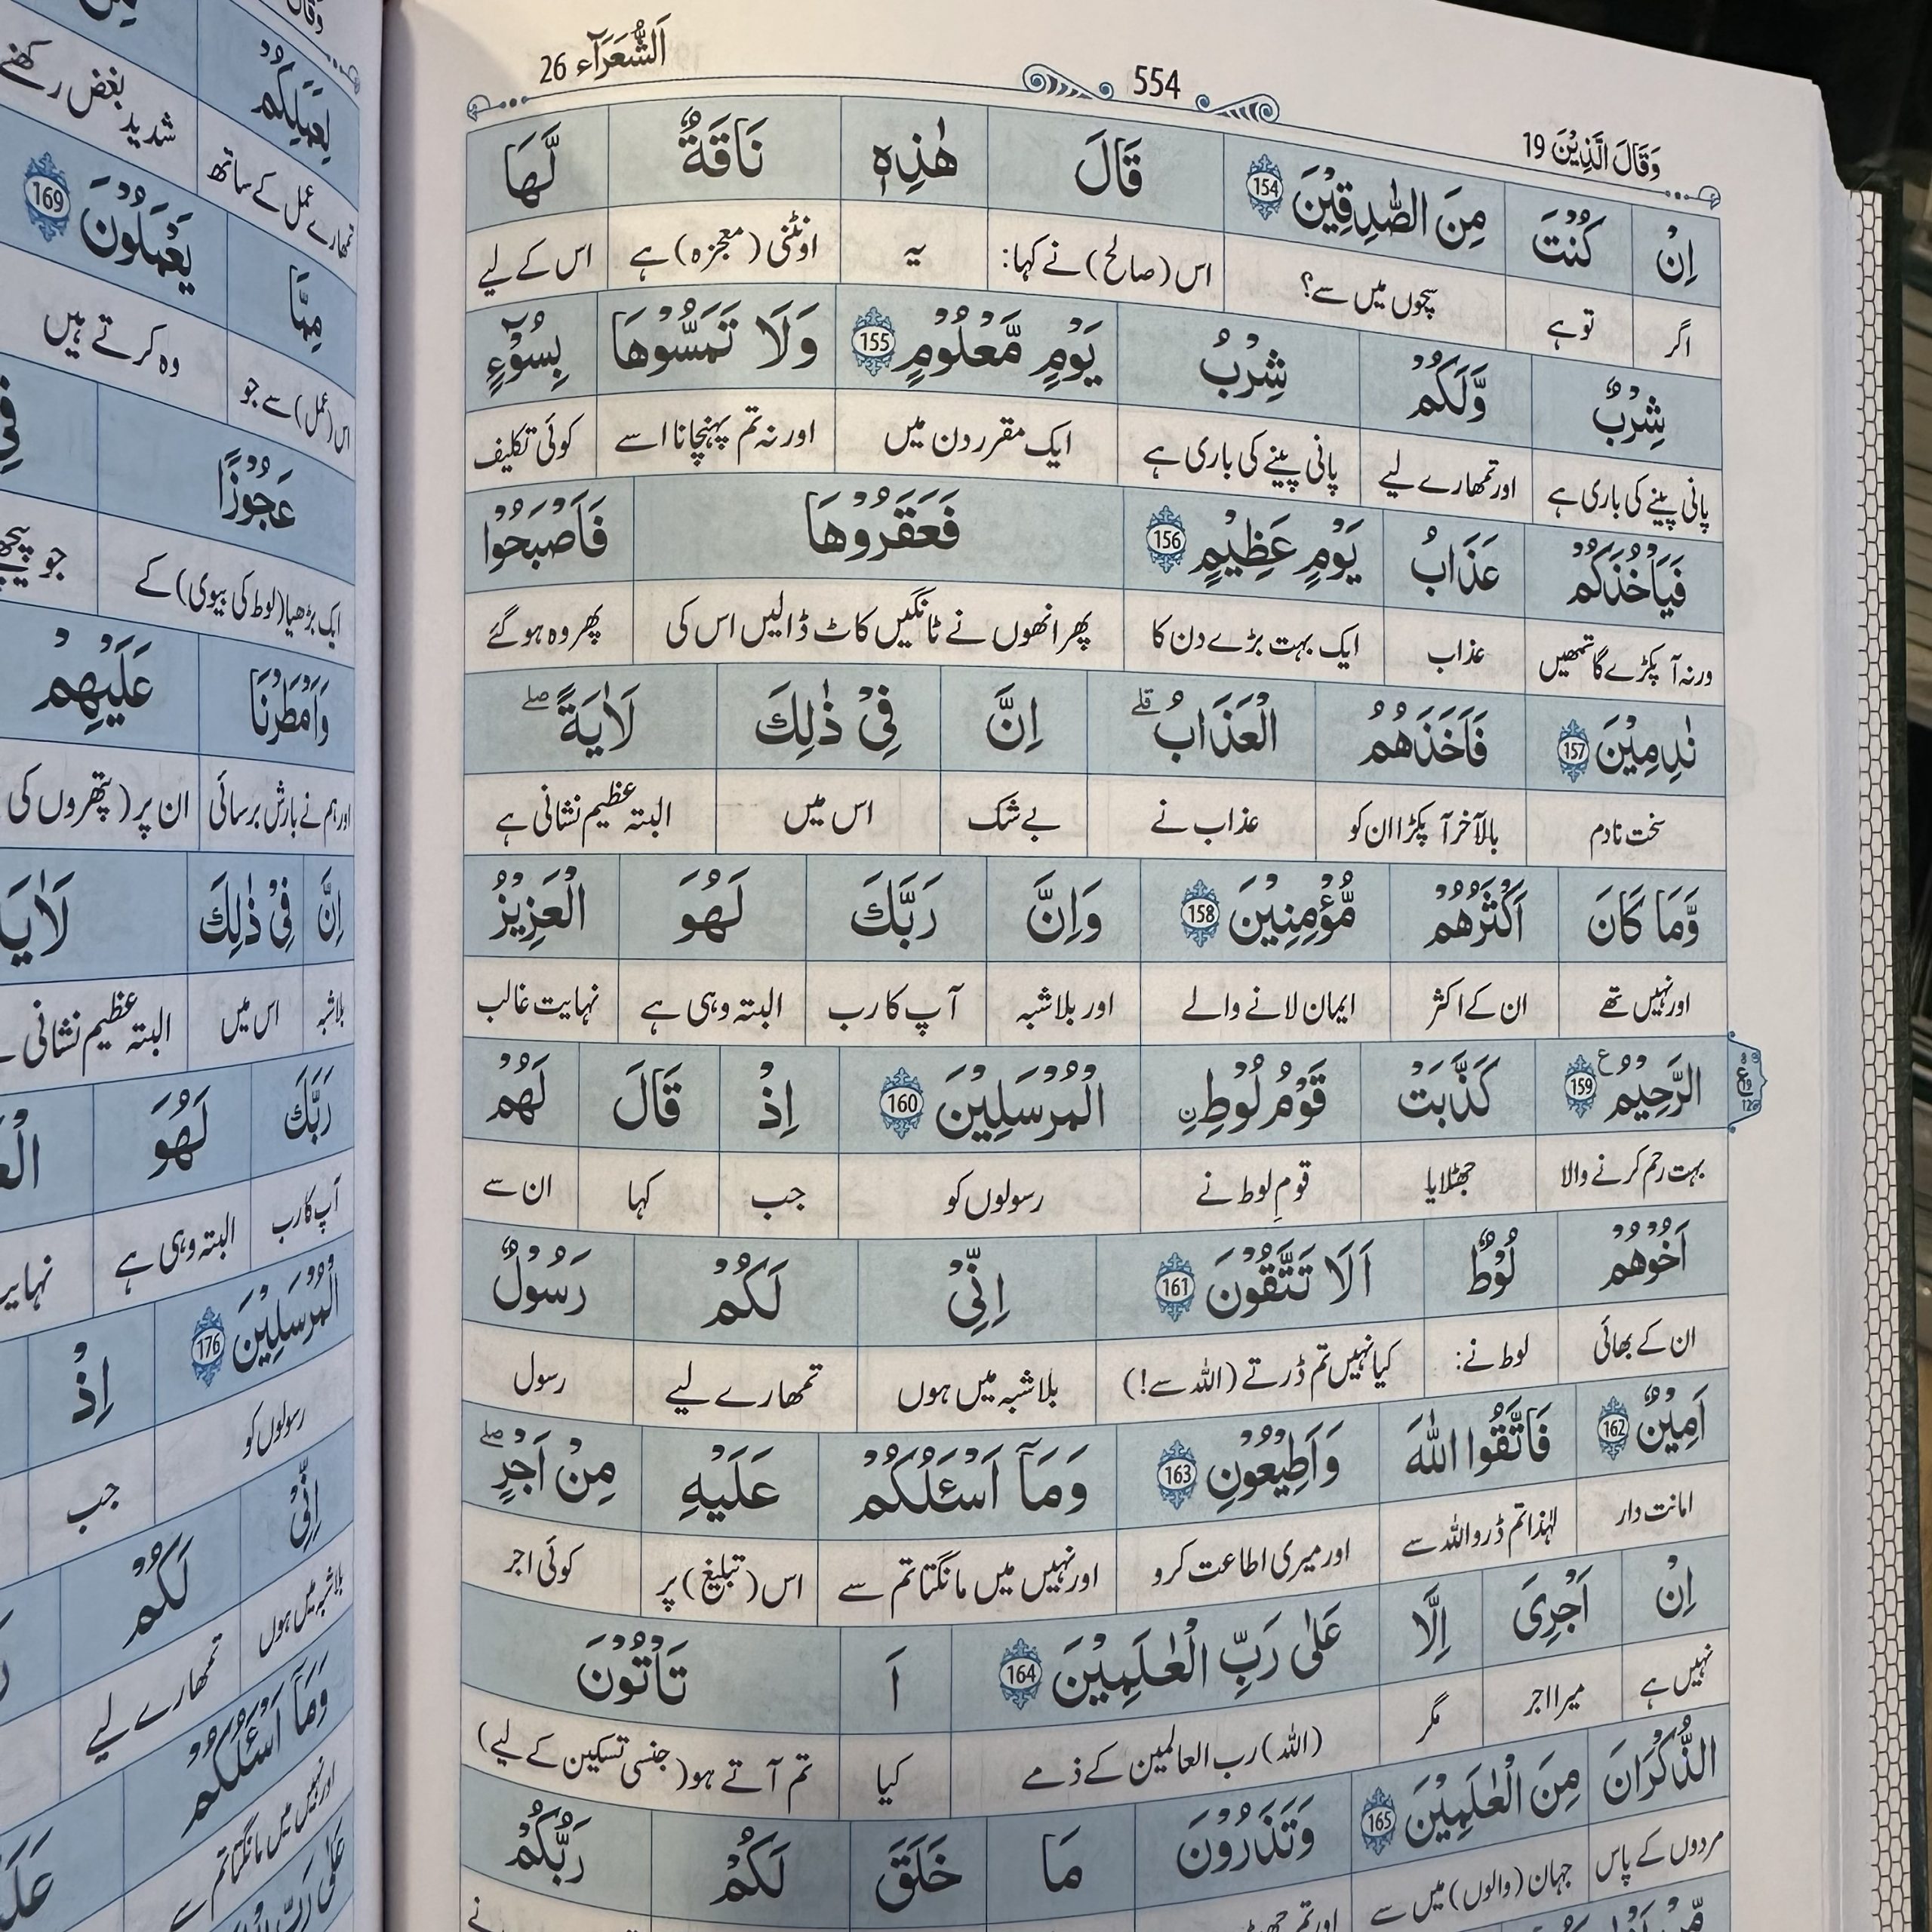 وَقَالَ الَّذِیْنَ 19 554 اَلشُّعَرَآء 26
اِنْ كُنْتَ مِنَ الصّٰدِقِیْنَ 154 قَالَ هٰذِهٖ نَاقَةٌ لَّهَا
اگر تو ہے سچوں میں سے؟ اس (صالح) نے کہا: یہ اونٹنی (معجزہ) ہے اس کے لیے
شِرْبٌ وَّلَكُمْ شِرْبُ یَوْمٍ مَّعْلُوْمٍ 155 وَلَا تَمَسُّوْهَا بِسُوْٓءٍ
پانی پینے کی باری ہے اور تمھارے لیے پانی پینے کی باری ہے ایک مقرر دن میں اور نہ تم پہنچانا اسے کوئی تکلیف
فَیَاْخُذَكُمْ عَذَابُ یَوْمٍ عَظِیْمٍ 156 فَعَقَرُوْهَا فَاَصْبَحُوْا
ورنہ آ پکڑے گا تمھیں عذاب ایک بہت بڑے دن کا پھر انھوں نے ٹانگیں کاٹ ڈالیں اس کی پھر وہ ہو گئے
نٰدِمِیْنَ 157 فَاَخَذَهُمُ الْعَذَابُ ؕ اِنَّ فِیْ ذٰلِكَ لَاٰیَةً ؕ
سخت نادم بالآخر آ پکڑا ان کو عذاب نے بے شک اس میں البتہ عظیم نشانی ہے
وَّمَا كَانَ اَكْثَرُهُمْ مُّؤْمِنِیْنَ 158 وَاِنَّ رَبَّكَ لَهُوَ الْعَزِیْزُ
اور نہیں تھے ان کے اکثر ایمان لانے والے اور بلاشبہ آپ کا رب البتہ وہی ہے نہایت غالب
الرَّحِیْمُ 159 كَذَّبَتْ قَوْمُ لُوْطِ ِن الْمُرْسَلِیْنَ 160 اِذْ قَالَ لَهُمْ
بہت رحم کرنے والا جھٹلایا قومِ لوط نے رسولوں کو جب کہا ان سے
اَخُوْهُمْ لُوْطٌ اَلَا تَتَّقُوْنَ 161 اِنِّیْ لَكُمْ رَسُوْلٌ
ان کے بھائی لوط نے: کیا نہیں تم ڈرتے (اللہ سے!) بلاشبہ میں ہوں تمھارے لیے رسول
اَمِیْنٌ 162 فَاتَّقُوا اللّٰهَ وَاَطِیْعُوْنِ 163 وَمَاۤ اَسْئَلُكُمْ عَلَیْهِ مِنْ اَجْرٍ
امانت دار لہٰذا تم ڈرو اللہ سے اور میری اطاعت کرو اور نہیں میں مانگتا تم سے اس (تبلیغ) پر کوئی اجر
اِنْ اَجْرِیَ اِلَّا عَلٰی رَبِّ الْعٰلَمِیْنَ 164 اَ تَاْتُوْنَ
نہیں ہے میرا اجر مگر (اللہ) رب العالمین کے ذمے کیا تم آتے ہو (جنسی تسکین کے لیے)
الذُّكْرَانَ مِنَ الْعٰلَمِیْنَ 165 وَتَذَرُوْنَ مَا خَلَقَ لَكُمْ رَبُّكُمْ
مردوں کے پاس جہان (والوں) میں سے اور تم
لِعَمَلِكُمْ
تمھارے عمل کے ساتھ شدید بغض رکھنے
مِمَّا یَعْمَلُوْنَ 169
اس (عمل) سے جو وہ کرتے ہیں
عَجُوْزًا فِی
ایک بڑھیا (لوط کی بیوی) کے جو
وَاَمْطَرْنَا عَلَیْهِمْ
اور ہم نے بارش برسائی ان پر (پتھروں کی
اِنَّ فِیْ ذٰلِكَ
بلاشبہ اس میں البتہ عظیم نشانی
رَبَّكَ لَهُوَ
آپ کا رب البتہ وہی ہے
الْمُرْسَلِیْنَ 176 اِذْ
رسولوں کو جب
اِنِّیْ لَكُمْ
بلاشبہ میں ہوں تمھارے لیے
وَمَاۤ اَسْئَلُكُمْ
اور نہیں میں مانگتا تم سے
عَلٰی رَبِّ